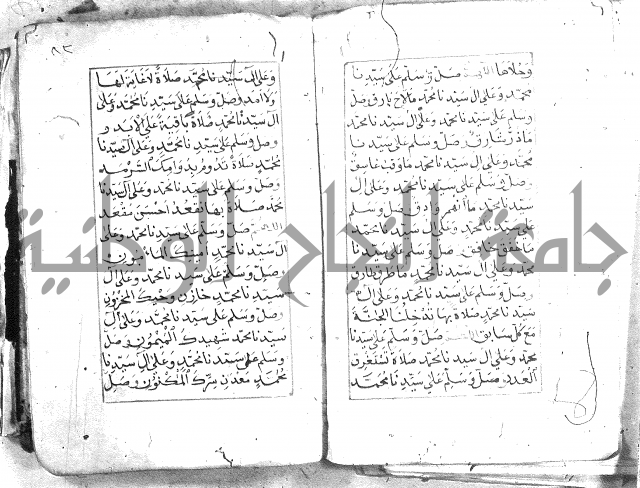 وخلاها اللهم صل وسلم على سيدنا
محمد وعلى ال سيدنا محمد مالاح بارق وصل
وسلم على سيدنا محمد وعلى ال سيدنا محمد
ماذر شارق وصل وسلم على سيدنا
محمد وعلى ال سيدنا محمد ماوقب غاسق
وصل وسلم على سيدنا محمد وعلى ال
سيدنا محمد ما انهمر وادق وصل وسلم
على سيدنا محمد وعلى ال سيدنا محمد
وصل وسلم على سيدنا
محمد وعلى ال سيدنا محمد ماطرق طارق
وصل وسلم على سيدنا محمد وعلى ال
سيدنا محمد صلاة بها تدخلنا الجنة
مع كل سابق اللهم صل وسلم على سيدنا
محمد وعلى ال سيدنا محمد صلاة تستغرق
العدد وصل وسلم على سيدنا محمد
٨٢
وعلى ال سيدنا محمد صلاة لا غاية لها
ولا امد وصل وسلم على سيدنا محمد وعلى
ال سيدنا محمد صلاة باقية على الابد
وصل وسلم على سيدنا محمد وعلى ال سيدنا
محمد صلاة تدوم بدوامك السرمد
وصل وسلم على سيدنا محمد وعلى ال سيدنا
محمد صلاة بها نقعد احسن مقعد
اللهم صل وسلم على سيدنا محمد وعلى
ال سيدنا محمد امينك المأمون
وصل وسلم على سيدنا محمد وعلى ال
سيدنا محمد خازن وحيك المخزون
وصل وسلم على سيدنا محمد وعلى ال
سيدنا محمد شهيدك الميمون وصل
وسلم على سيدنا محمد وعلى ال سيدنا
محمد معدن سرك المكنون وصل
جامعة النجاح الوطنية